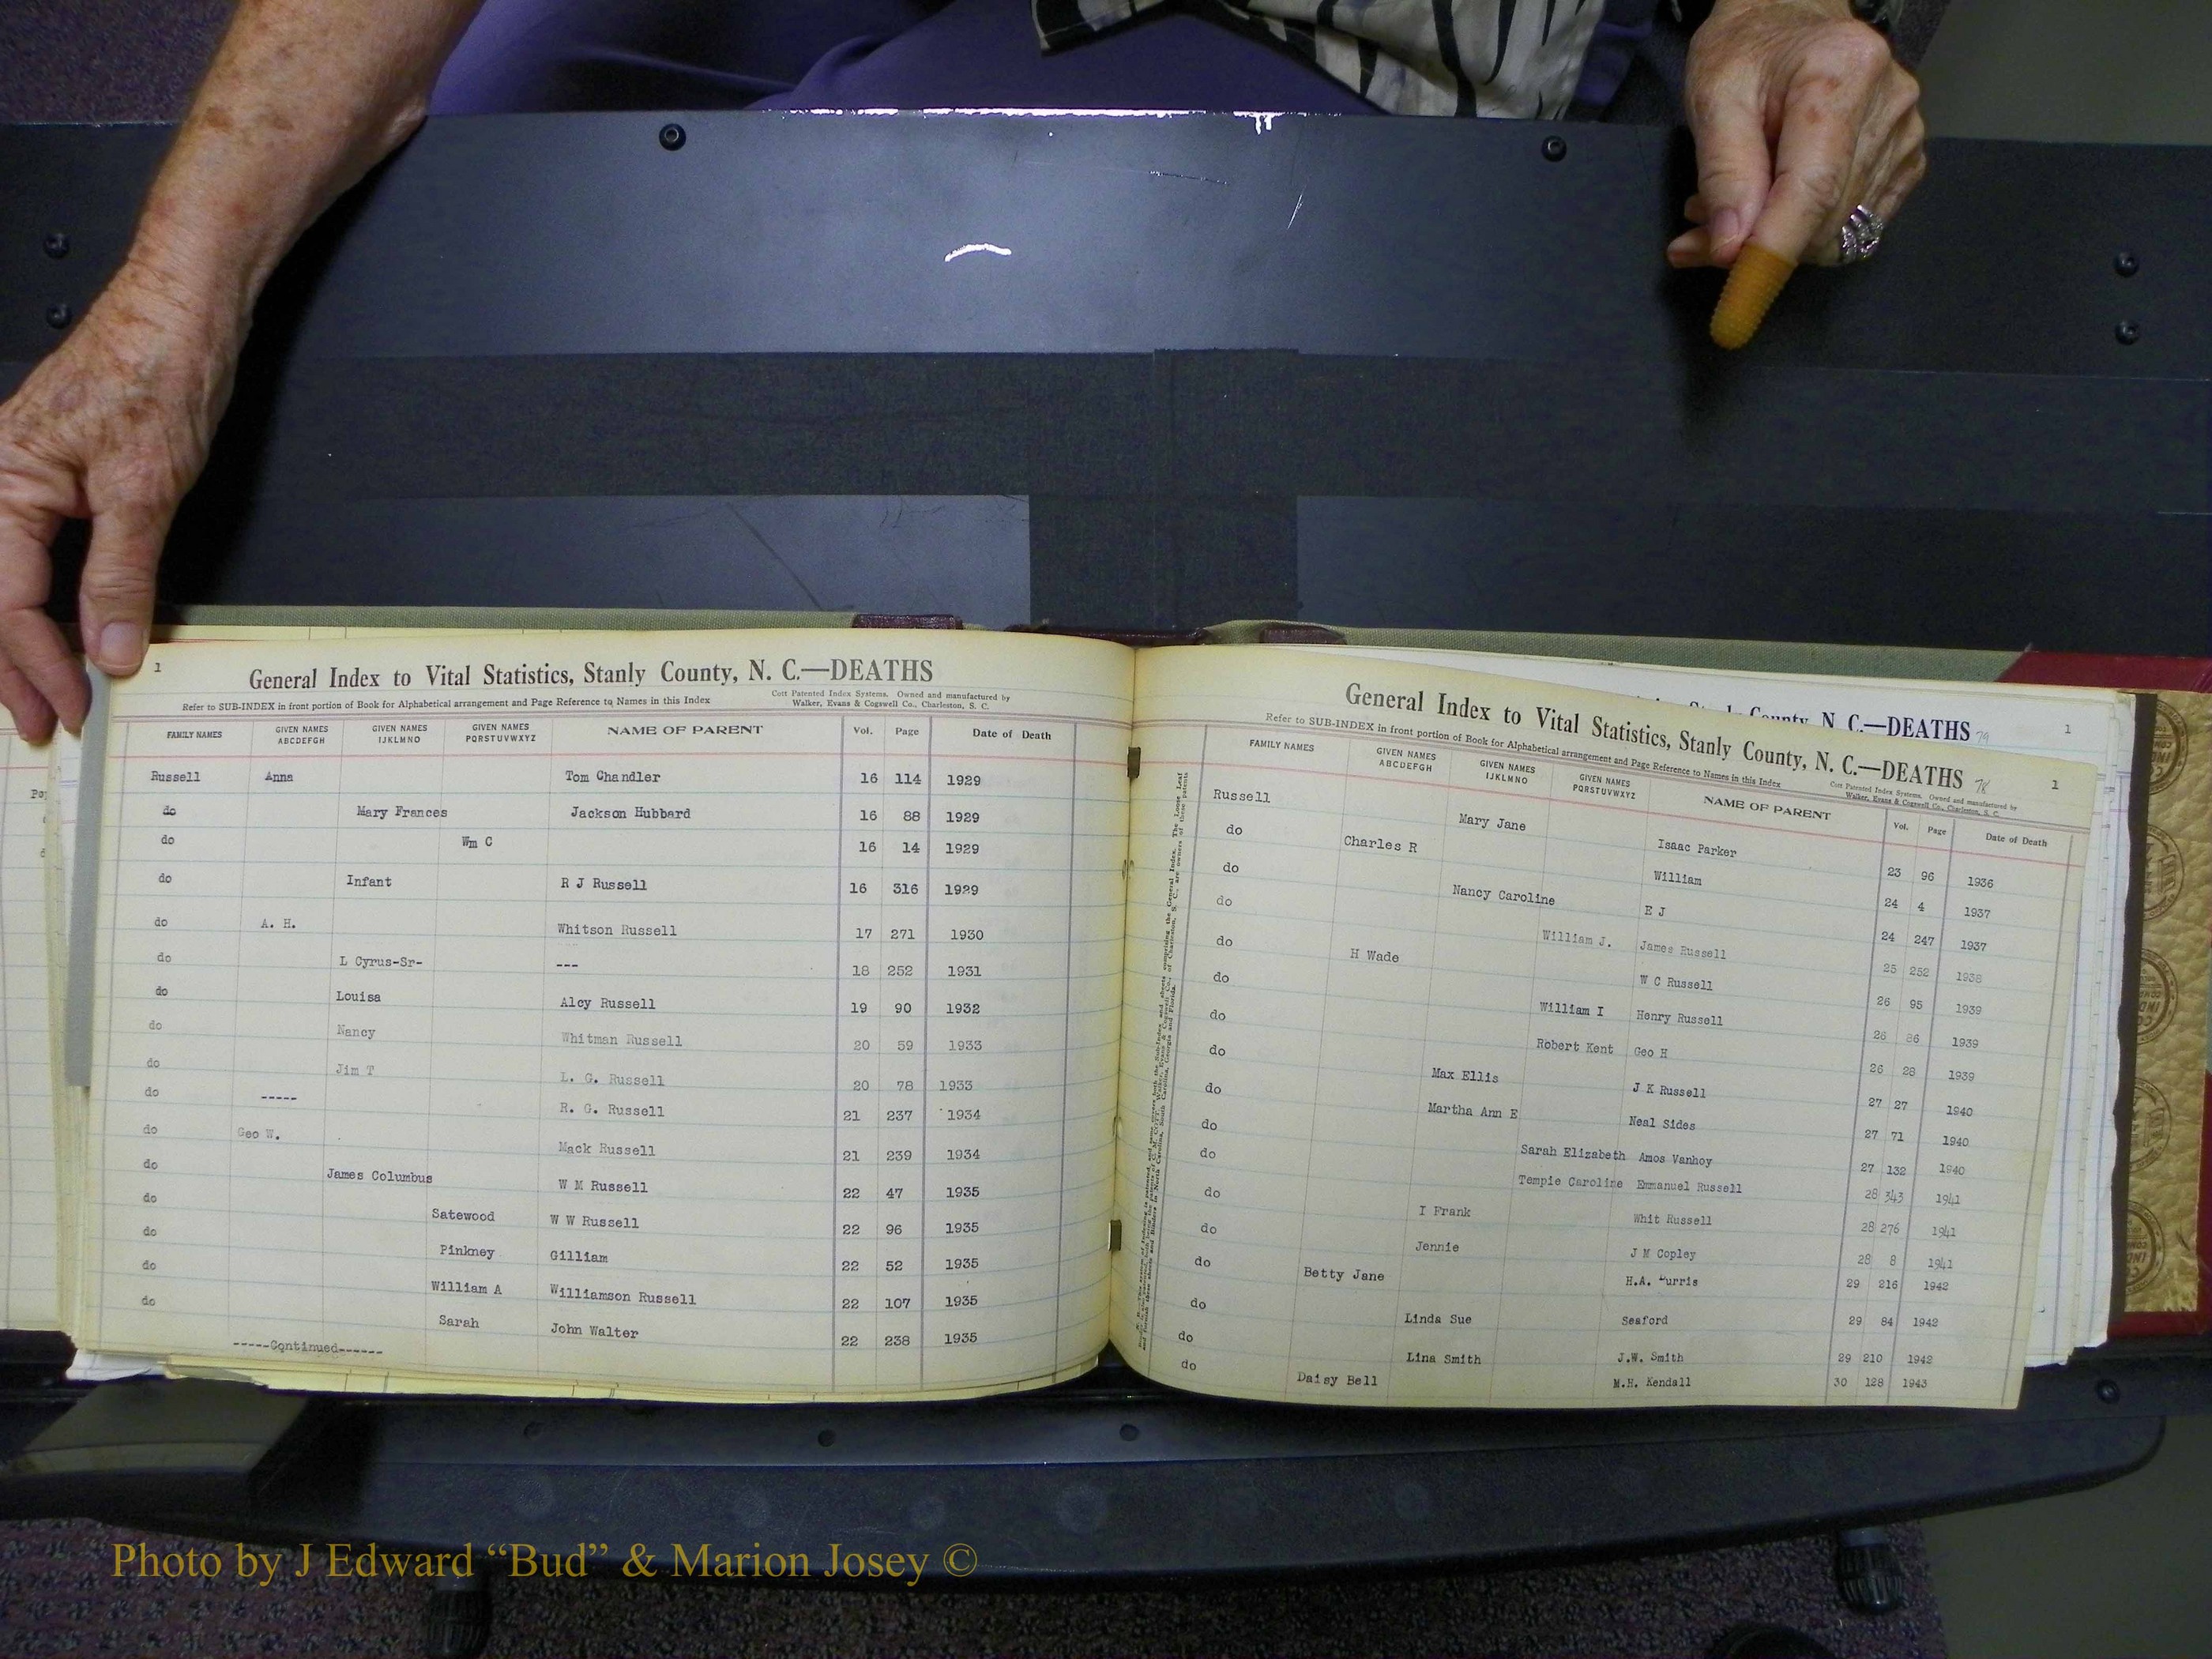 1
General Index to Vital Statistics, Stanly County, N. C.—DEATHS
Refer to SUB-INDEX in front portion of Book for Alphabetical arrangement and Page Reference to Names in this Index
Cott Patented Index Systems. Owned and manufactured by
Walker, Evans & Cogswell Co., Charleston, S. C.
FAMILY NAMES GIVEN NAMES ABCDEFGH GIVEN NAMES IJKLMNO GIVEN NAMES PQRSTUVWXYZ NAME OF PARENT Vol. Page Date of Death
Russell Anna Tom Chandler 16 114 1929
do Mary Frances Jackson Hubbard 16 88 1929
do Wm C 16 14 1929
do Infant R J Russell 16 316 1929
do A. H. Whitson Russell 17 271 1930
do L Cyrus-Sr- --- 18 252 1931
do Louisa Alcy Russell 19 90 1932
do Nancy Whitman Russell 20 59 1933
do Jim T L. G. Russell 20 78 1933
do ----- R. G. Russell 21 237 1934
do Geo W. Mack Russell 21 239 1934
do James Columbus W M Russell 22 47 1935
do Satewood W W Russell 22 96 1935
do Pinkney Gilliam 22 52 1935
do William A Williamson Russell 22 107 1935
do Sarah John Walter 22 238 1935
-----Continued------
County, N. C.—DEATHS 79 1
General Index to Vital Statistics, Stanly County, N. C.—DEATHS 78 1
Refer to SUB-INDEX in front portion of Book for Alphabetical arrangement and Page Reference to Names in this Index
Cott Patented Index Systems. Owned and manufactured by
Walker, Evans & Cogswell Co., Charleston, S. C.
FAMILY NAMES GIVEN NAMES ABCDEFGH GIVEN NAMES IJKLMNO GIVEN NAMES PQRSTUVWXYZ NAME OF PARENT Vol. Page Date of Death
Russell Mary Jane Isaac Parker 23 96 1936
do Charles R William 24 4 1937
do Nancy Caroline E J 24 247 1937
do William J. James Russell 25 252 1938
do H Wade W C Russell 26 95 1939
do William I Henry Russell 26 86 1939
do Robert Kent Geo H 26 28 1939
do Max Ellis J K Russell 27 27 1940
do Martha Ann E Neal Sides 27 71 1940
do Sarah Elizabeth Amos Vanhoy 27 132 1940
do Tempie Caroline Emmanuel Russell 28 343 1941
do I Frank Whit Russell 28 276 1941
do Jennie J M Copley 28 8 1941
do Betty Jane H.A. Burris 29 216 1942
do Linda Sue Seaford 29 84 1942
do Lina Smith J.W. Smith 29 210 1942
do Daisy Bell M.H. Kendall 30 128 1943
Photo by J Edward “Bud” & Marion Josey ©